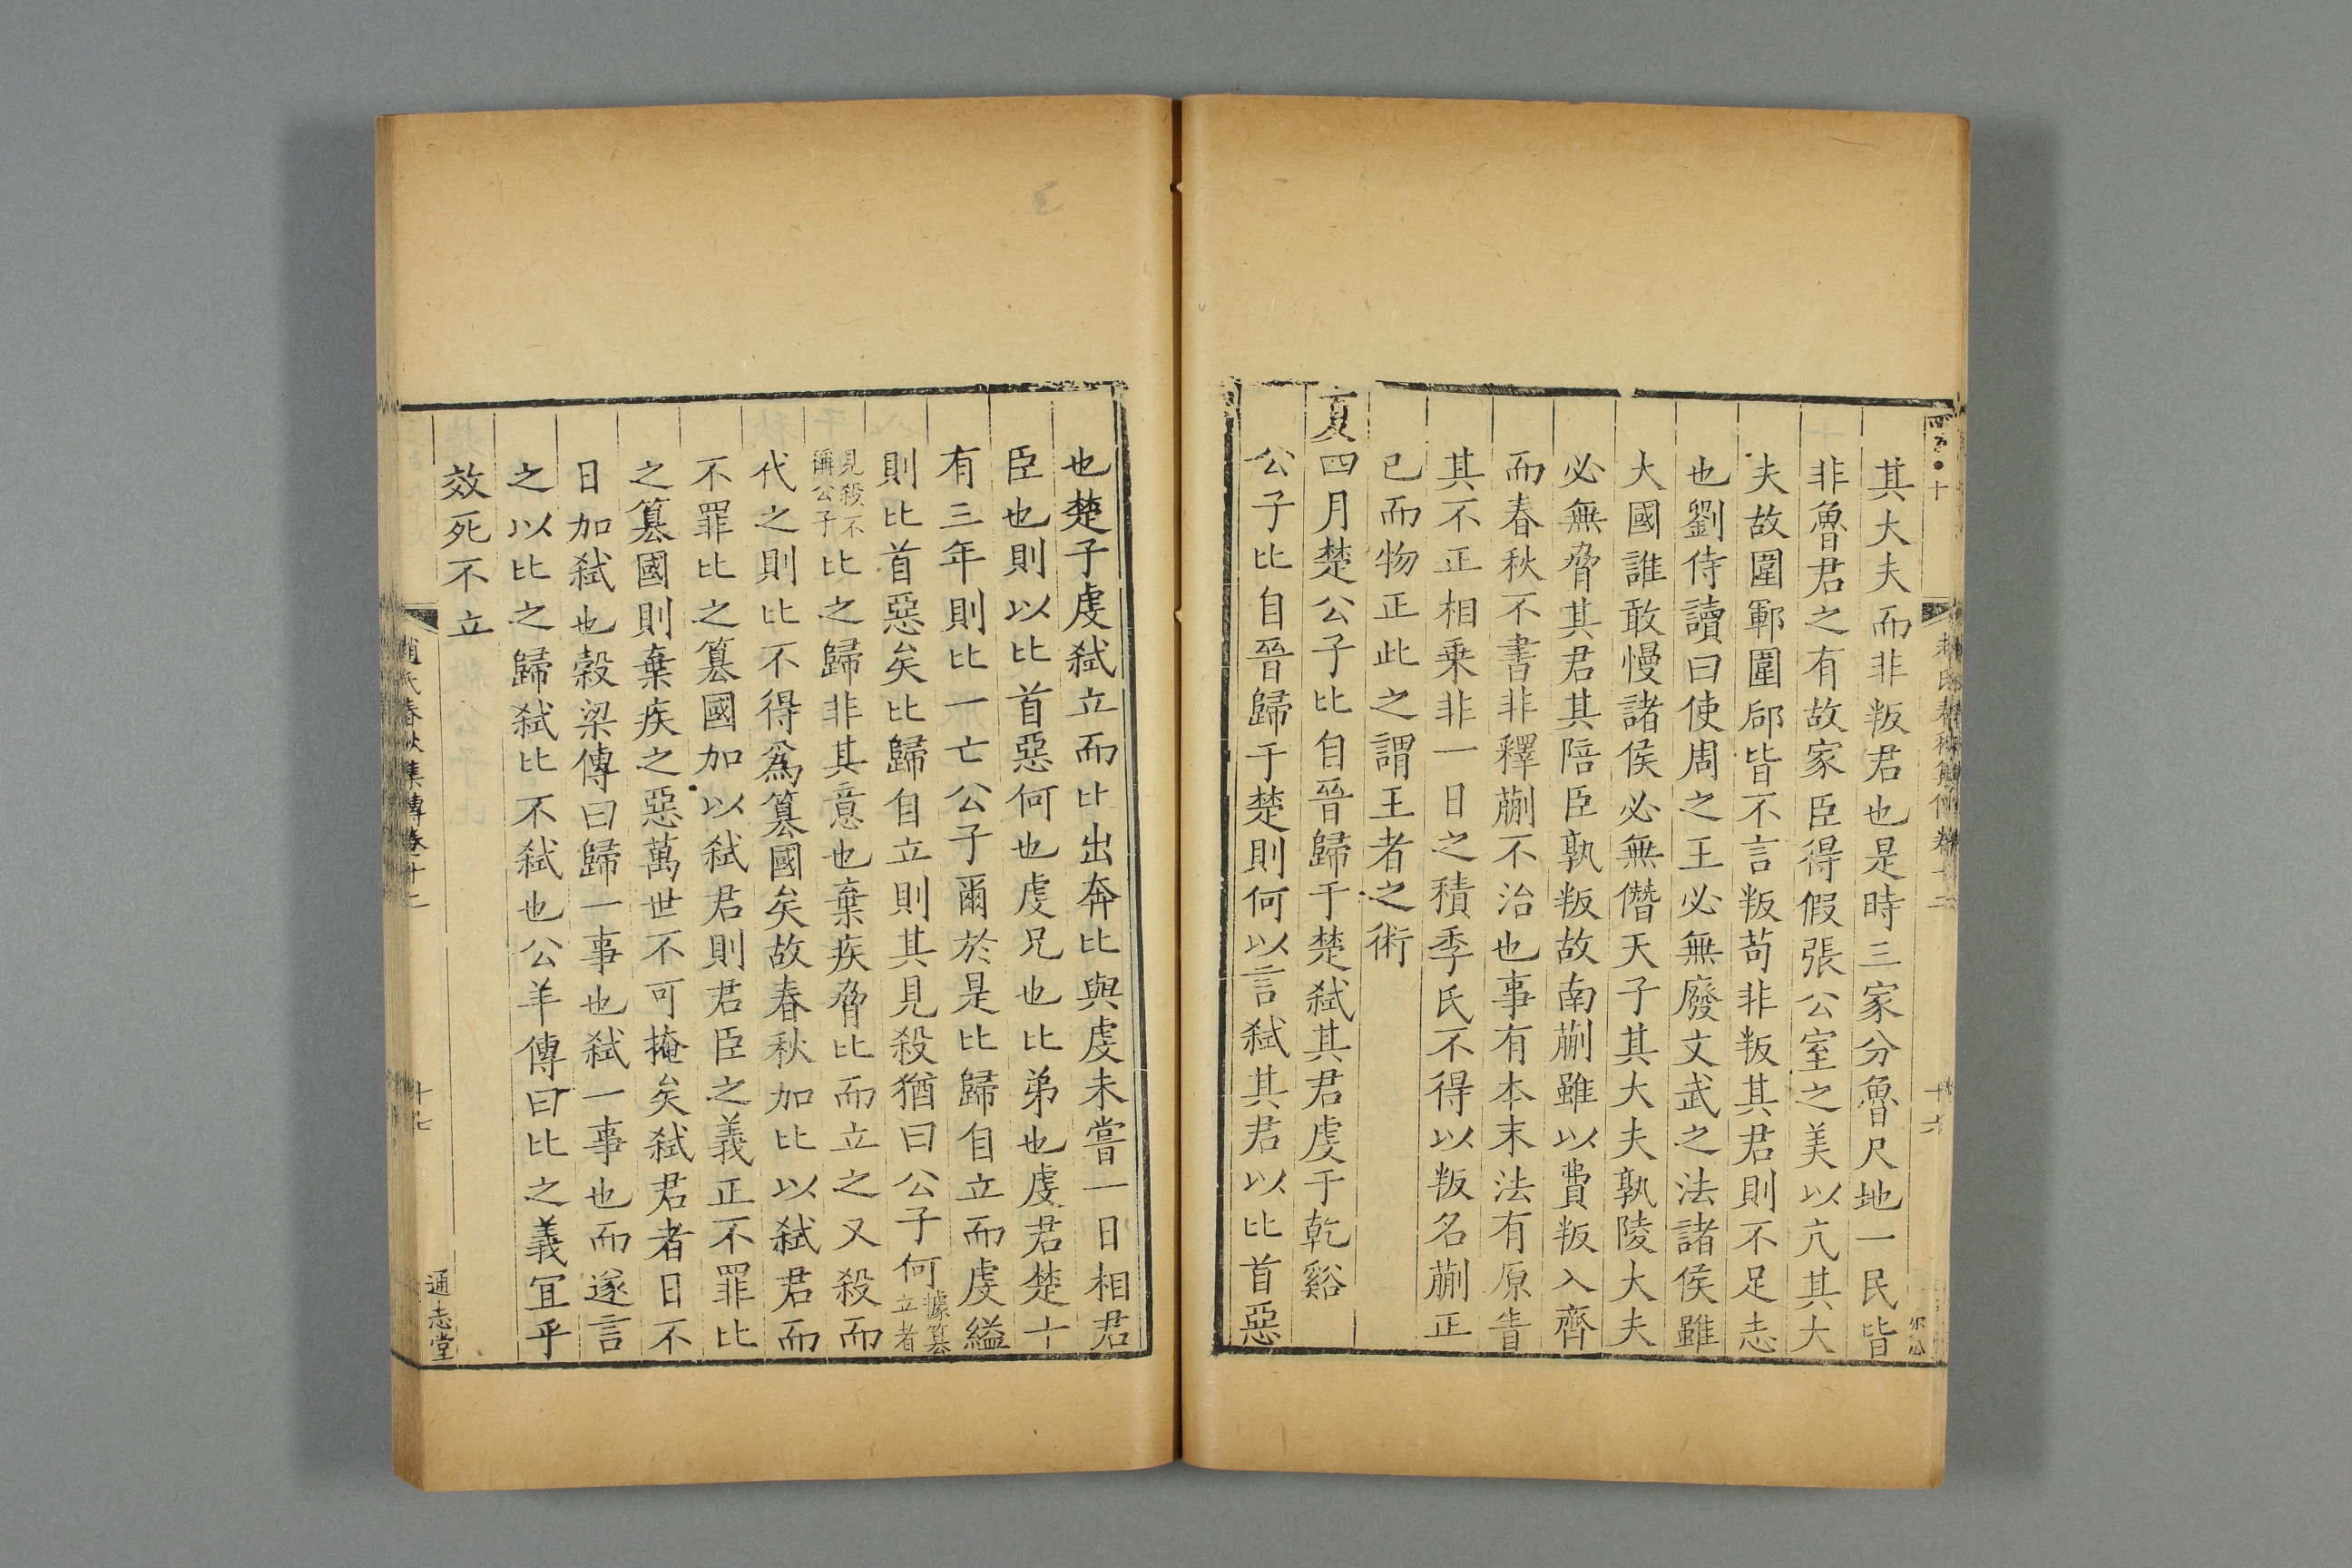 其大夫而非叛君也是時三家分魯尺地一民皆
非魯君之有故家臣得假張公室之美以亢其大
夫故圍鄆圍郈皆不言叛苟非叛其君則不足志
也劉侍讀曰使周之王必無廢文武之法諸侯雖
大國誰敢慢諸侯必無僭天子其大夫孰陵大夫
必無脅其君其陪臣孰叛故南蒯雖以費叛入齊
而春秋不書非釋蒯不治也事有本末法有原眚
其不正相乗非一日之積季氏不得以叛名蒯正
已而物正此之謂王者之術
夏四月楚公子比自晉歸于楚弑其君虔于乾谿
公子比自晉歸于楚則何以言弑其君以比首惡
也楚子虔弑立而比出奔比與虔未嘗一日相君
臣也則以比首惡何也虔兄也比弟也虔君楚十
有三年則比一亡公子爾於是比歸自立而虔縊
則比首惡矣比歸自立則其見殺猶曰公子何據篡立者
見殺不稱公子比之歸非其意也棄疾脅比而立之又殺而
代之則比不得爲篡國矣故春秋加比以弑君而
不罪比之篡國加以弑君則君臣之義正不罪比
之篡國則棄疾之惡萬世不可掩矣弑君者日不
日加弑也穀梁傳曰歸一事也弑一事也而遂言
之以比之歸弑比不弑也公羊傳曰比之義宜乎
效死不立
趙氏春秋集傳卷十二
十七
通志堂